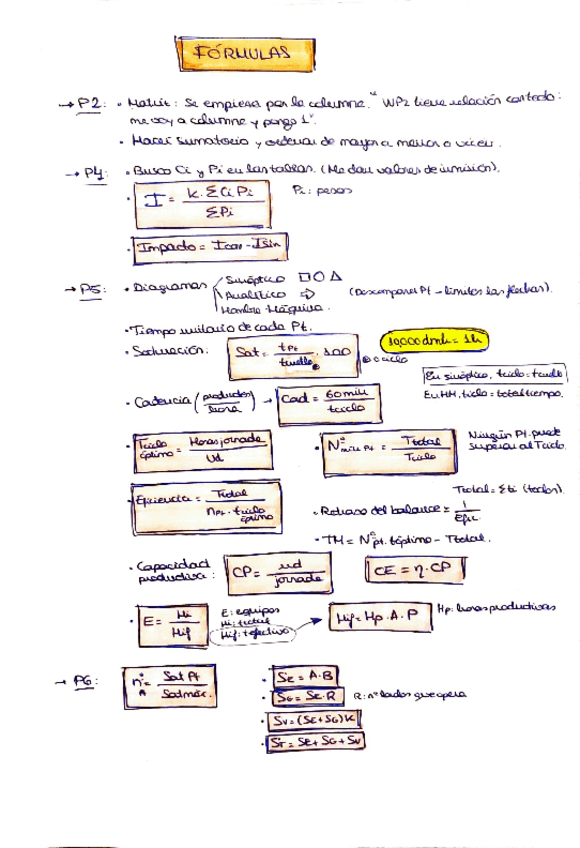 FÓRMULAS
→ P2: • Matriz: Se empieza por la columna. "WP2 tiene relación con todo:
me voy a columna y pongo 1".
• Hacer sumatorio y ordenar de mayor a menor o vicev.
→ P4: • Busco Ci y Pi en las tablas. (Me dan valores de inmisión).
• I = K·ΣCiPi / ΣPi Pi: pesos
• Impacto = Icon - Isin
→ P5: • Diagramas Sinóptico □○△
Analítico ⇨ (Descomponer Pt - límites las flechas).
Hombre Máquina.
• Tiempo unitario de cada Pt.
• Saturación: Sat = tPt / tcuello · 100 10,000 dmh = 1h
o ciclo
En sinóptico, tciclo = tcuello
• Cadencia (productos / hora) → Cad = 60 min / tciclo En HM, tciclo = total tiempo.
• Tciclo óptimo = Horas jornada / Ud • Nº mín Pt = Ttotal / Tciclo Ningún Pt. puede
superar al Tciclo.
• Eficiencia = Ttotal / nPt · tciclo óptimo Ttotal = Σti (todos).
• Retraso del balance = 1 / Efic
• TM = Nº pt. tóptimo - Ttotal.
• Capacidad
productiva: CP = ud / jornada CE = η·CP
• E = Hi / Hif E: equipos
Hi: t total
Hif: t efectivo → Hif = Hp·A·P Hp: horas productivas
→ P6: nº = Sat Pt / Sat máx. • SE = A·B
• SG = SE·R R: nº lados que opera
• SV = (SE+SG)K
• ST = SE + SG + SV